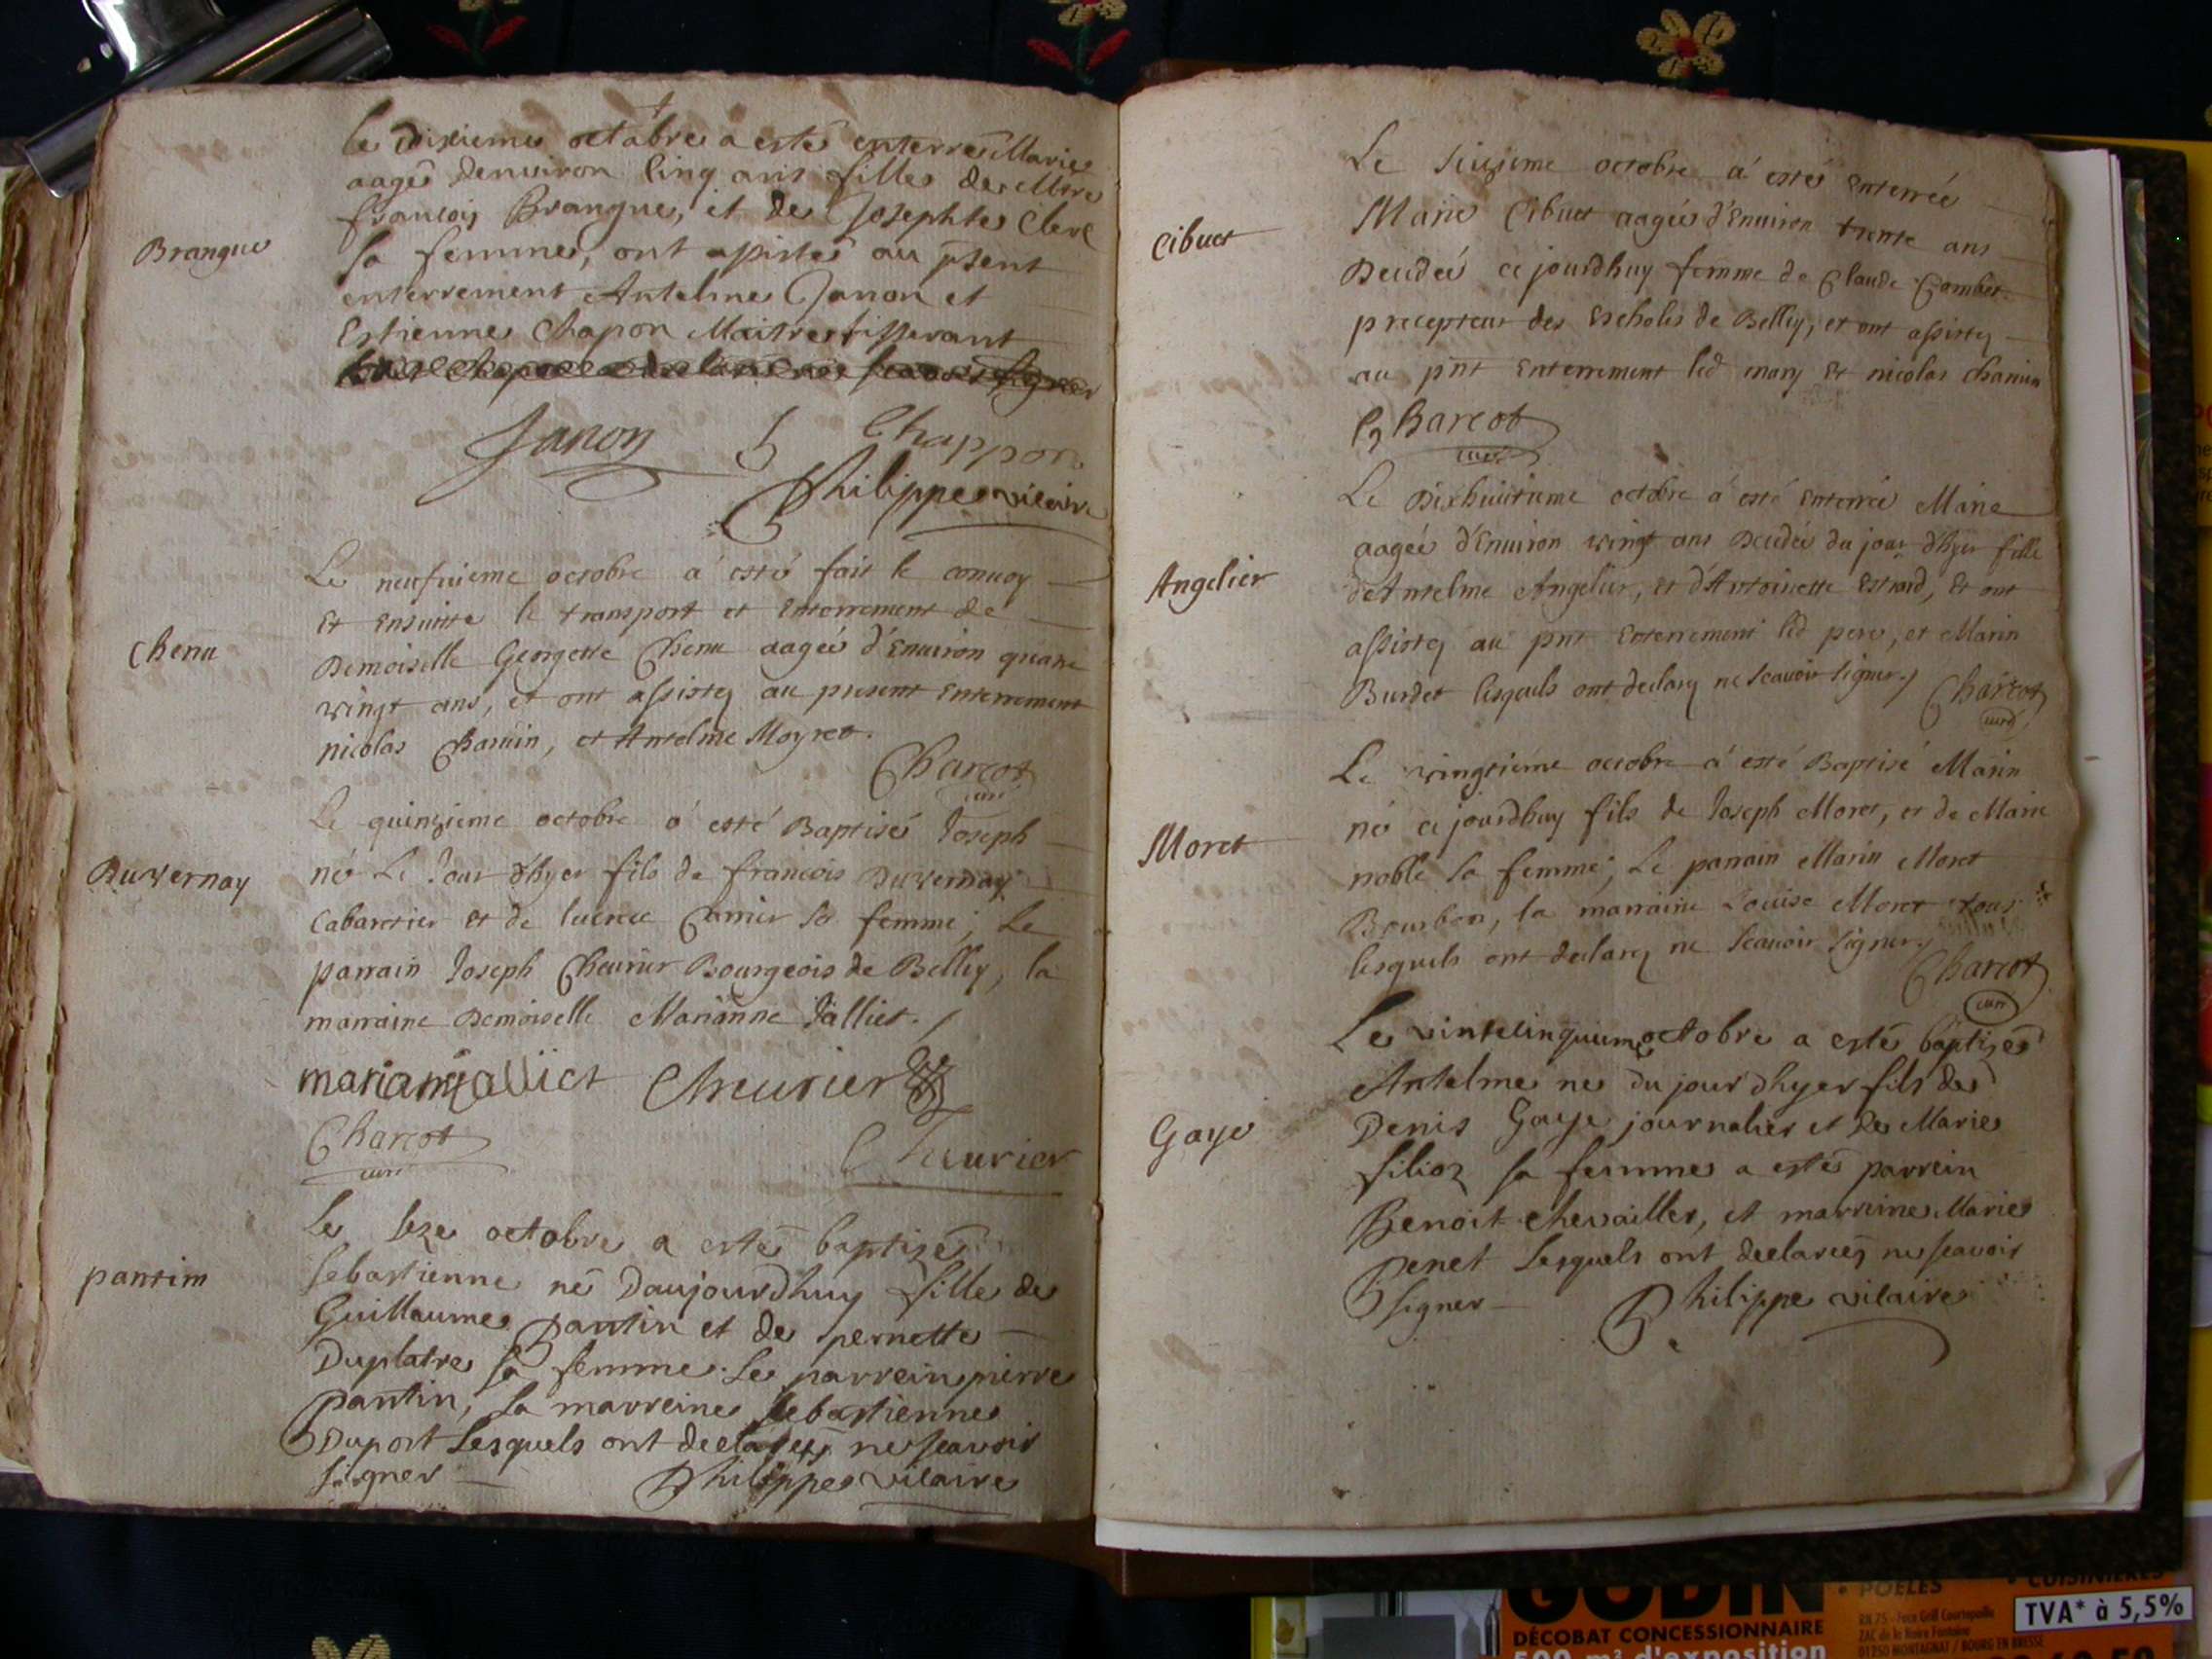 Le dixieme octobre a esté enterre Marie
aagé denviron cinq ans fille de Msre
francois Brangue, et de Josephte Clerc
Brangue
sa femme, ont assistes au psent
enterrement Antelme Janon et
Estienne Chapon Maitre tisserant
Janon Chappon
Philippe vicaire
Le neufuieme octobre a esté fait le convoy
Et Ensuitte le transport et Enterrement de
Chenu
Demoiselle Georgette Chenu aagée d'Enuiron quatre
vingt ans, et ont assistez au present Enterrement
nicolas Chamin, et Antelme Moyret.
Charcot
curé
Le quinzieme octobre a esté Baptisé Joseph
Duvernay
né Le Jour d'hyer fils de francois Duvernay
Cabaretier et de lucrece Carrier sa femme; Le
parrain Joseph Cheurier Bourgeois de Belley, la
marraine Demoiselle Marianne Jalliet.
marianne jalliet Cheurier
Charcot Cheurier
curé
Le seze octobre a esté baptizé
pantin
sebastienne né Daujourdhuy fille de
Guillaume Pantin et de pernette
Duplatre sa femme. Le parrein pierre
Pantin, La marreine sebastienne
Duport Lesquels ont declarez ne scavoir
signer Philippe vicaire
Le seizieme octobre a esté enterrée
Cibuet
Marie Cibuet aagée d'Enuiron trente ans
Decedée ce jourdhuy femme de Claude Combet
precepteur des Escholes de Belley, et ont assistez
au pnt Enterrement led mary Et nicolas chamin
Charcot
curé
Le Dixhuitieme octobre a esté Enterrée Marie
Angelier
aagée d'Enuiron vingt ans Decedée du jour d'hyer fille
d'Antelme Angelier, et d'Antoinette Estrard, Et ont
assistez au pnt Enterrement led pere, et Marin
Burdet lesquels ont declarez ne scavoir signer. Charcot
curé
Le vingtiéme octobre a esté Baptisé Marin
Moret
né ce jourdhuy fils de Joseph Moret, et de Marie
noble sa femme; Le parrain Marin Moret
Bourbon, la marraine Louise Moret tous
lesquels ont declarez ne scavoir signer.
Charcot
curé
Le vintcinquieme octobre a esté baptizé
Antelme né du jour dhyer fils de
Gaye
Denis Gaye journalier et de Marie
filioz sa femme a esté parrein
Benoit chevailler, et marreine Marie
Penet Lesquels ont declarez ne scavoir
signer Philippe vicaire
GODIN
DÉCOBAT CONCESSIONNAIRE
500 m² d'exposition
• POÊLES
• CUISINIÈRES
TVA* à 5,5%
RN 75 - Face Grill Courtepaille
ZAC de la Noire Fontaine
01250 MONTAGNAT / BOURG EN BRESSE